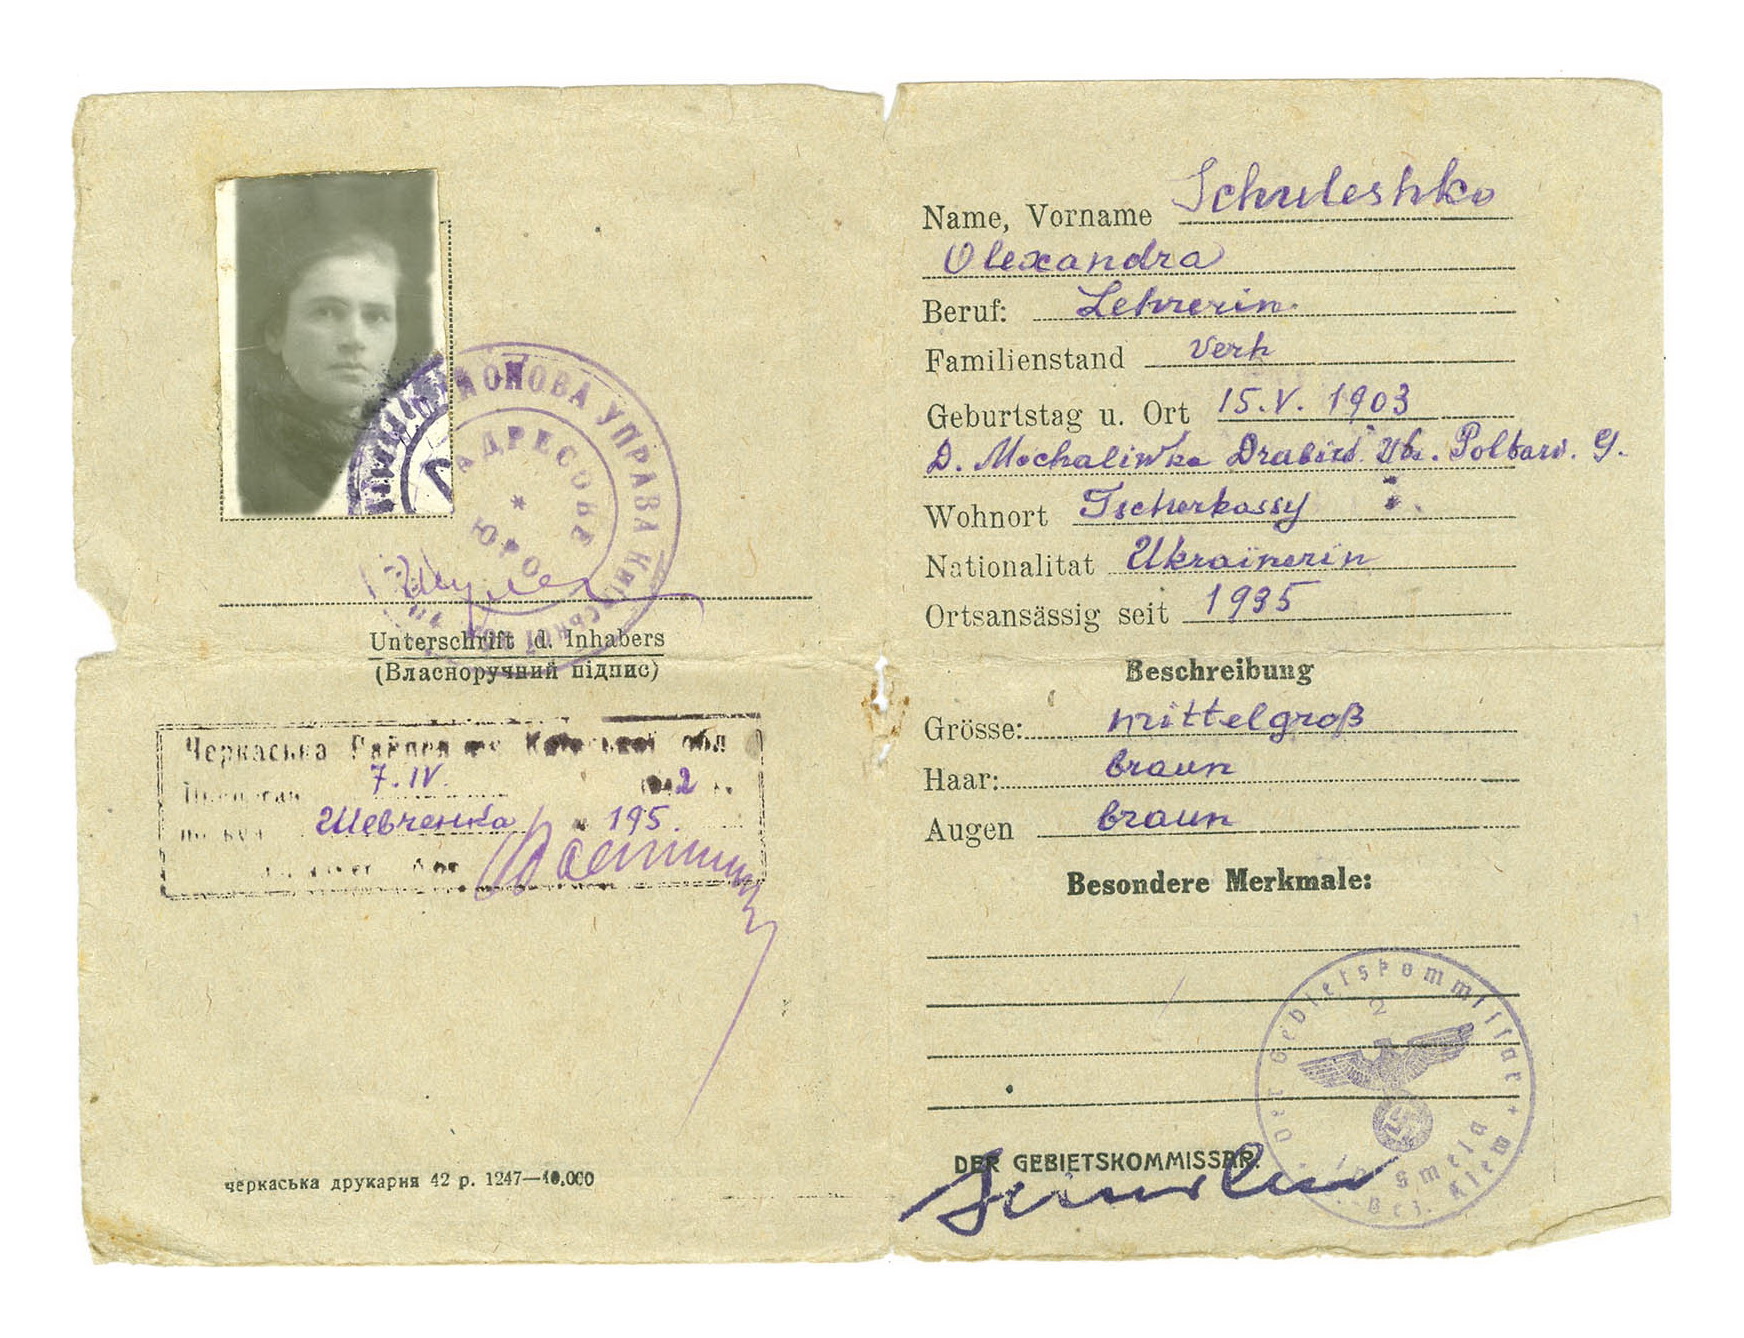 РАЙОНОВА УПРАВА КИЇВСЬКОЇ
АДРЕСОВЕ БЮРО
Шулеж
Unterschrift d. Inhabers
(Власноручний підпис)
Черкаська обл
7.IV. 2
Шевченка 195.
черкаська друкарня 42 р. 1247—10.000
Name, Vorname Schuleshko
Olexandra
Beruf: Lehrerin.
Familienstand Verh
Geburtstag u. Ort 15.V. 1903
D. Mochaliwka Drabiw Poltaw. G.
Wohnort Tscherkassy
Nationalitat Ukrainerin
Ortsansässig seit 1935
Beschreibung
Grösse: mittelgroß
Haar: braun
Augen braun
Besondere Merkmale:
Der Gebietskommissar
2
in Smela
Bez. Kiew
DER GEBIETSKOMMISSAR.